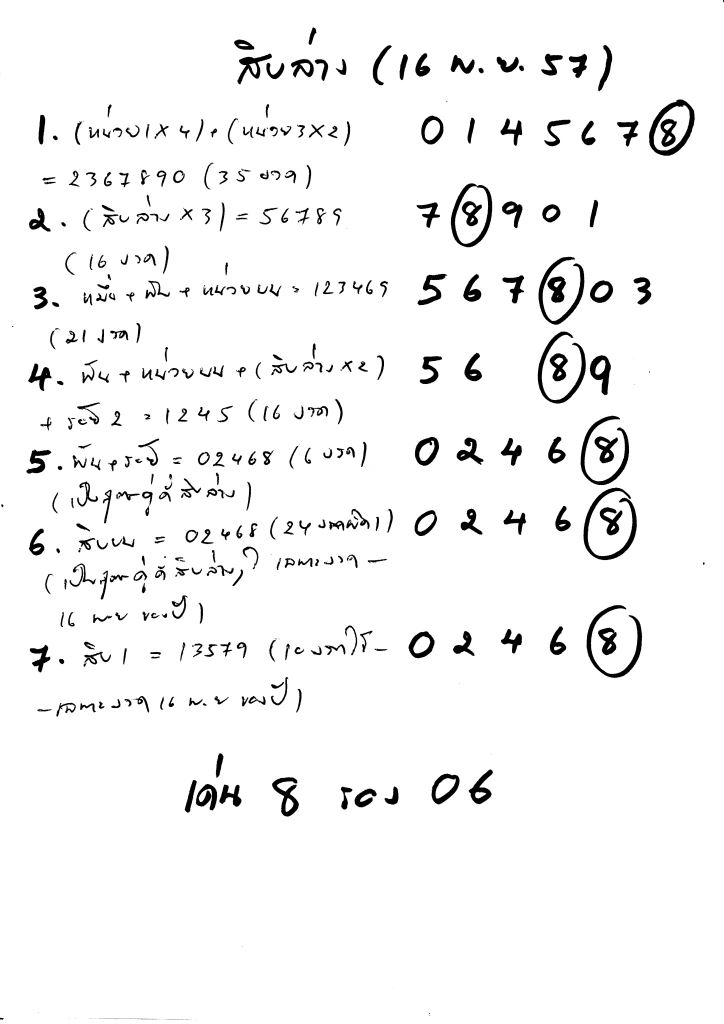 สิบล่าง (16 พ.ย. 57)
1. (หน่วย1 x 4) + (หน่วย3 x 2) 0 1 4 5 6 7 8
= 2367890 (35 งวด)
2. (สิบล่าง x 3) = 56789 7 8 9 0 1
(16 งวด)
3. หมื่น + พัน + หน่วยบน = 123469 5 6 7 8 0 3
(21 งวด)
4. พัน + หน่วยบน + (สิบล่าง x 2) 5 6 8 9
+ 2 = 1245 (16 งวด)
5. พัน + = 02468 (6 งวด) 0 2 4 6 8
(เป็นสูตรคู่คี่สิบล่าง)
6. สิบบน = 02468 (24 งวดผิด1) 0 2 4 6 8
(เป็นสูตรคู่คี่สิบล่าง, เฉพาะงวด –
16 พ.ย ของปี)
7. สิบ1 = 13579 (10 งวด 0 2 4 6 8
– เฉพาะงวด 16 พ.ย ของปี)
เด่น 8 รอง 06